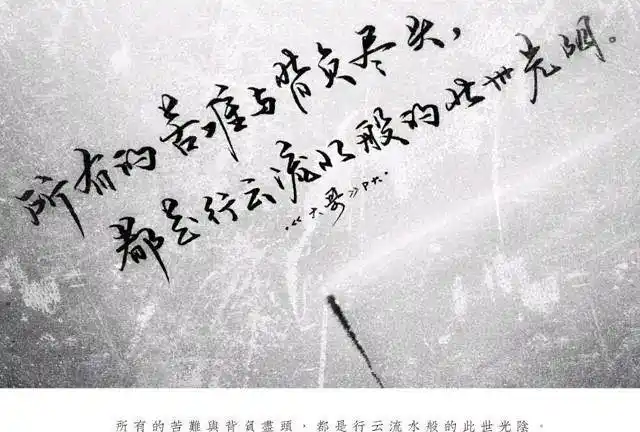 所有的苦难与背负尽头，
都是行云流水般的此世光明。
《大哥》P大.
所有的苦難與背負盡頭，都是行云流水般的此世光陰。